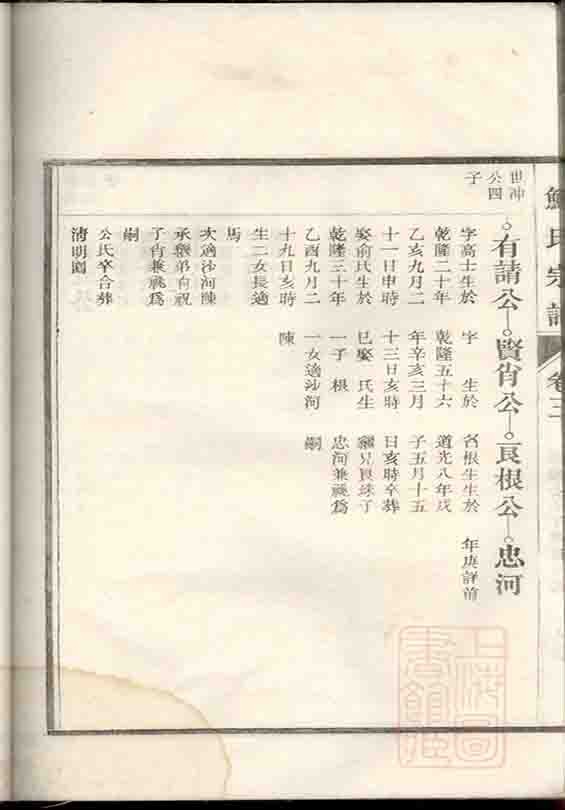 氏宗譜
卷三
世沖
公四
子
有請公 賢肖公 良根公 忠河
字高士生於
乾隆二十年
乙亥九月二
十一日申時
娶俞氏生於
乾隆三十年
乙酉九月二
十九日亥時
生二女長適
馬
次適沙河陳
承繼弟有祝
子肖兼祧為
嗣
公氏卒合葬
清明園
字 生於
乾隆五十六
年辛亥三月
十三日亥時
巳娶 氏生
一子 根
一女適沙河
陳
名根生生於
道光八年戊
子五月十五
日亥時卒葬
繼兄良球子
忠河兼祧為
嗣
年庚詳前
上海圖
書館藏